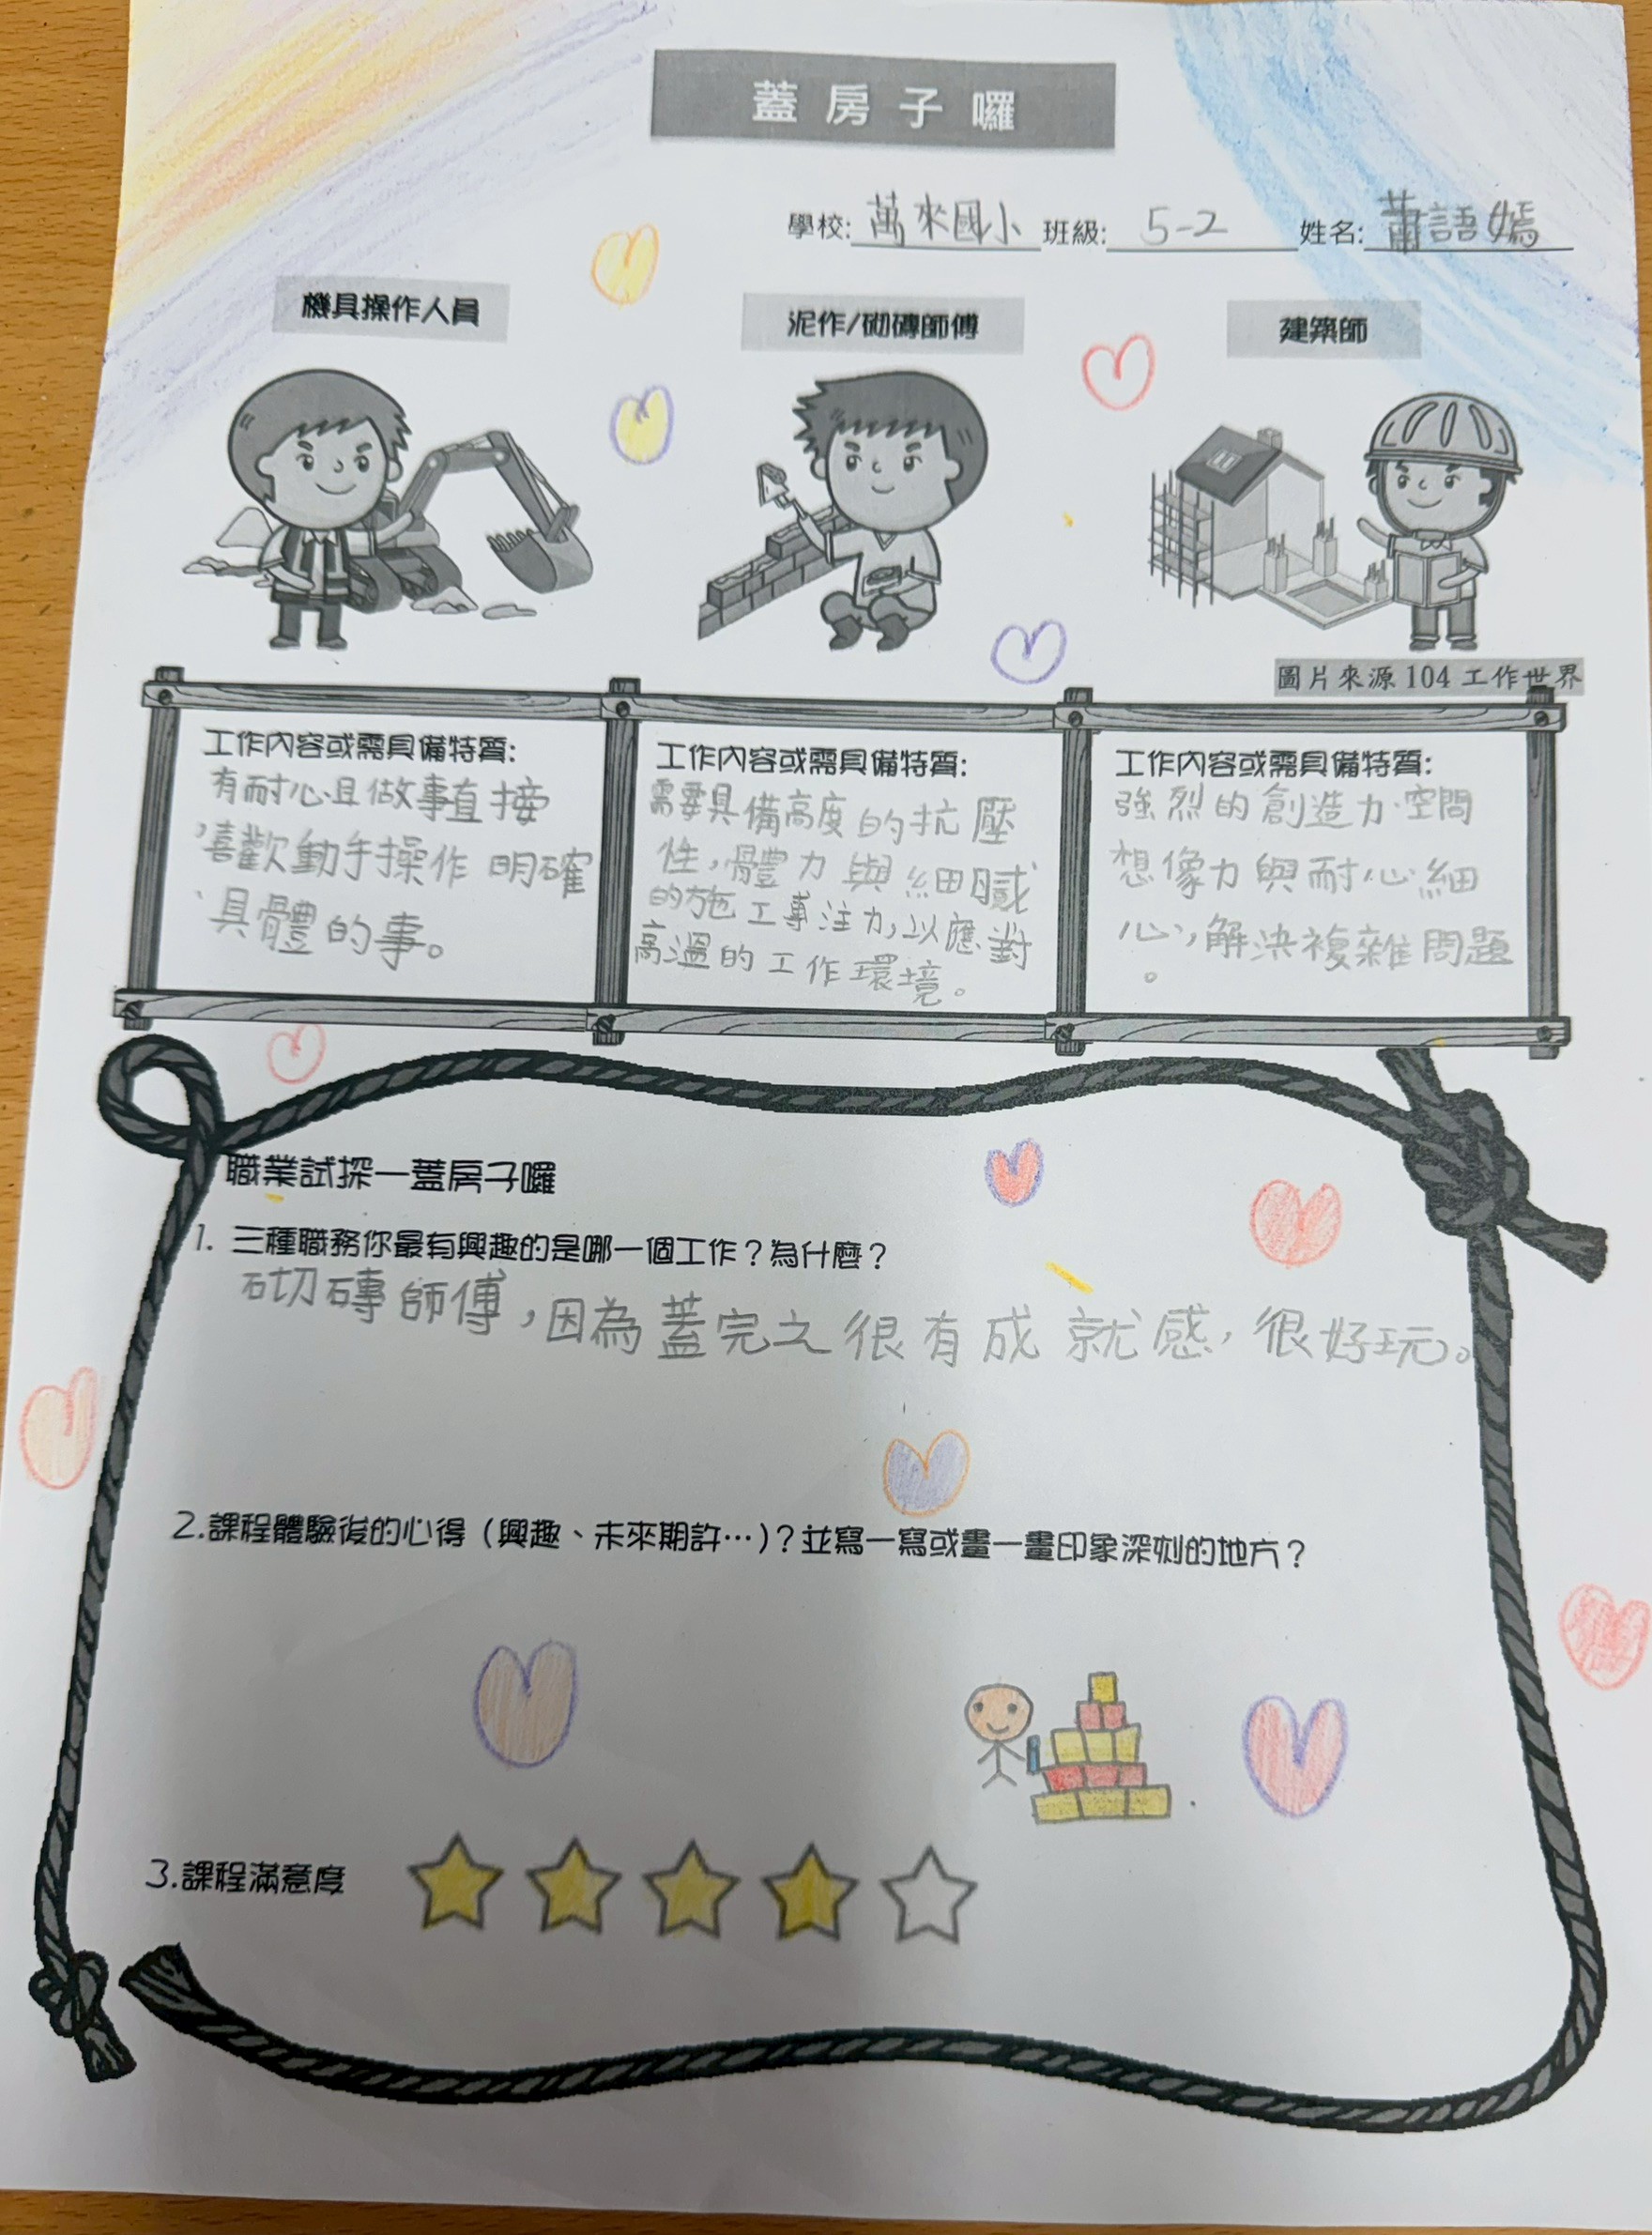 蓋房子囉
學校:萬來國小 班級: 5-2 姓名:蕭語嫣
機具操作人員
泥作/砌磚師傅
建築師
圖片來源 104 工作世界
工作內容或需具備特質:
有耐心且做事直接
,喜歡動手操作 明確
、具體的事。
工作內容或需具備特質:
需要具備高度的抗壓
性,體力與細膩
的施工專注力,以應對
高溫的工作環境。
工作內容或需具備特質:
強烈的創造力、空間
想像力與耐心細
心,解決複雜問題
。
職業試探—蓋房子囉
1. 三種職務你最有興趣的是哪一個工作？為什麼？
砌磚師傅,因為蓋完之很有成就感,很好玩。
2.課程體驗後的心得（興趣、未來期許…）？並寫一寫或畫一畫印象深刻的地方？
3.課程滿意度